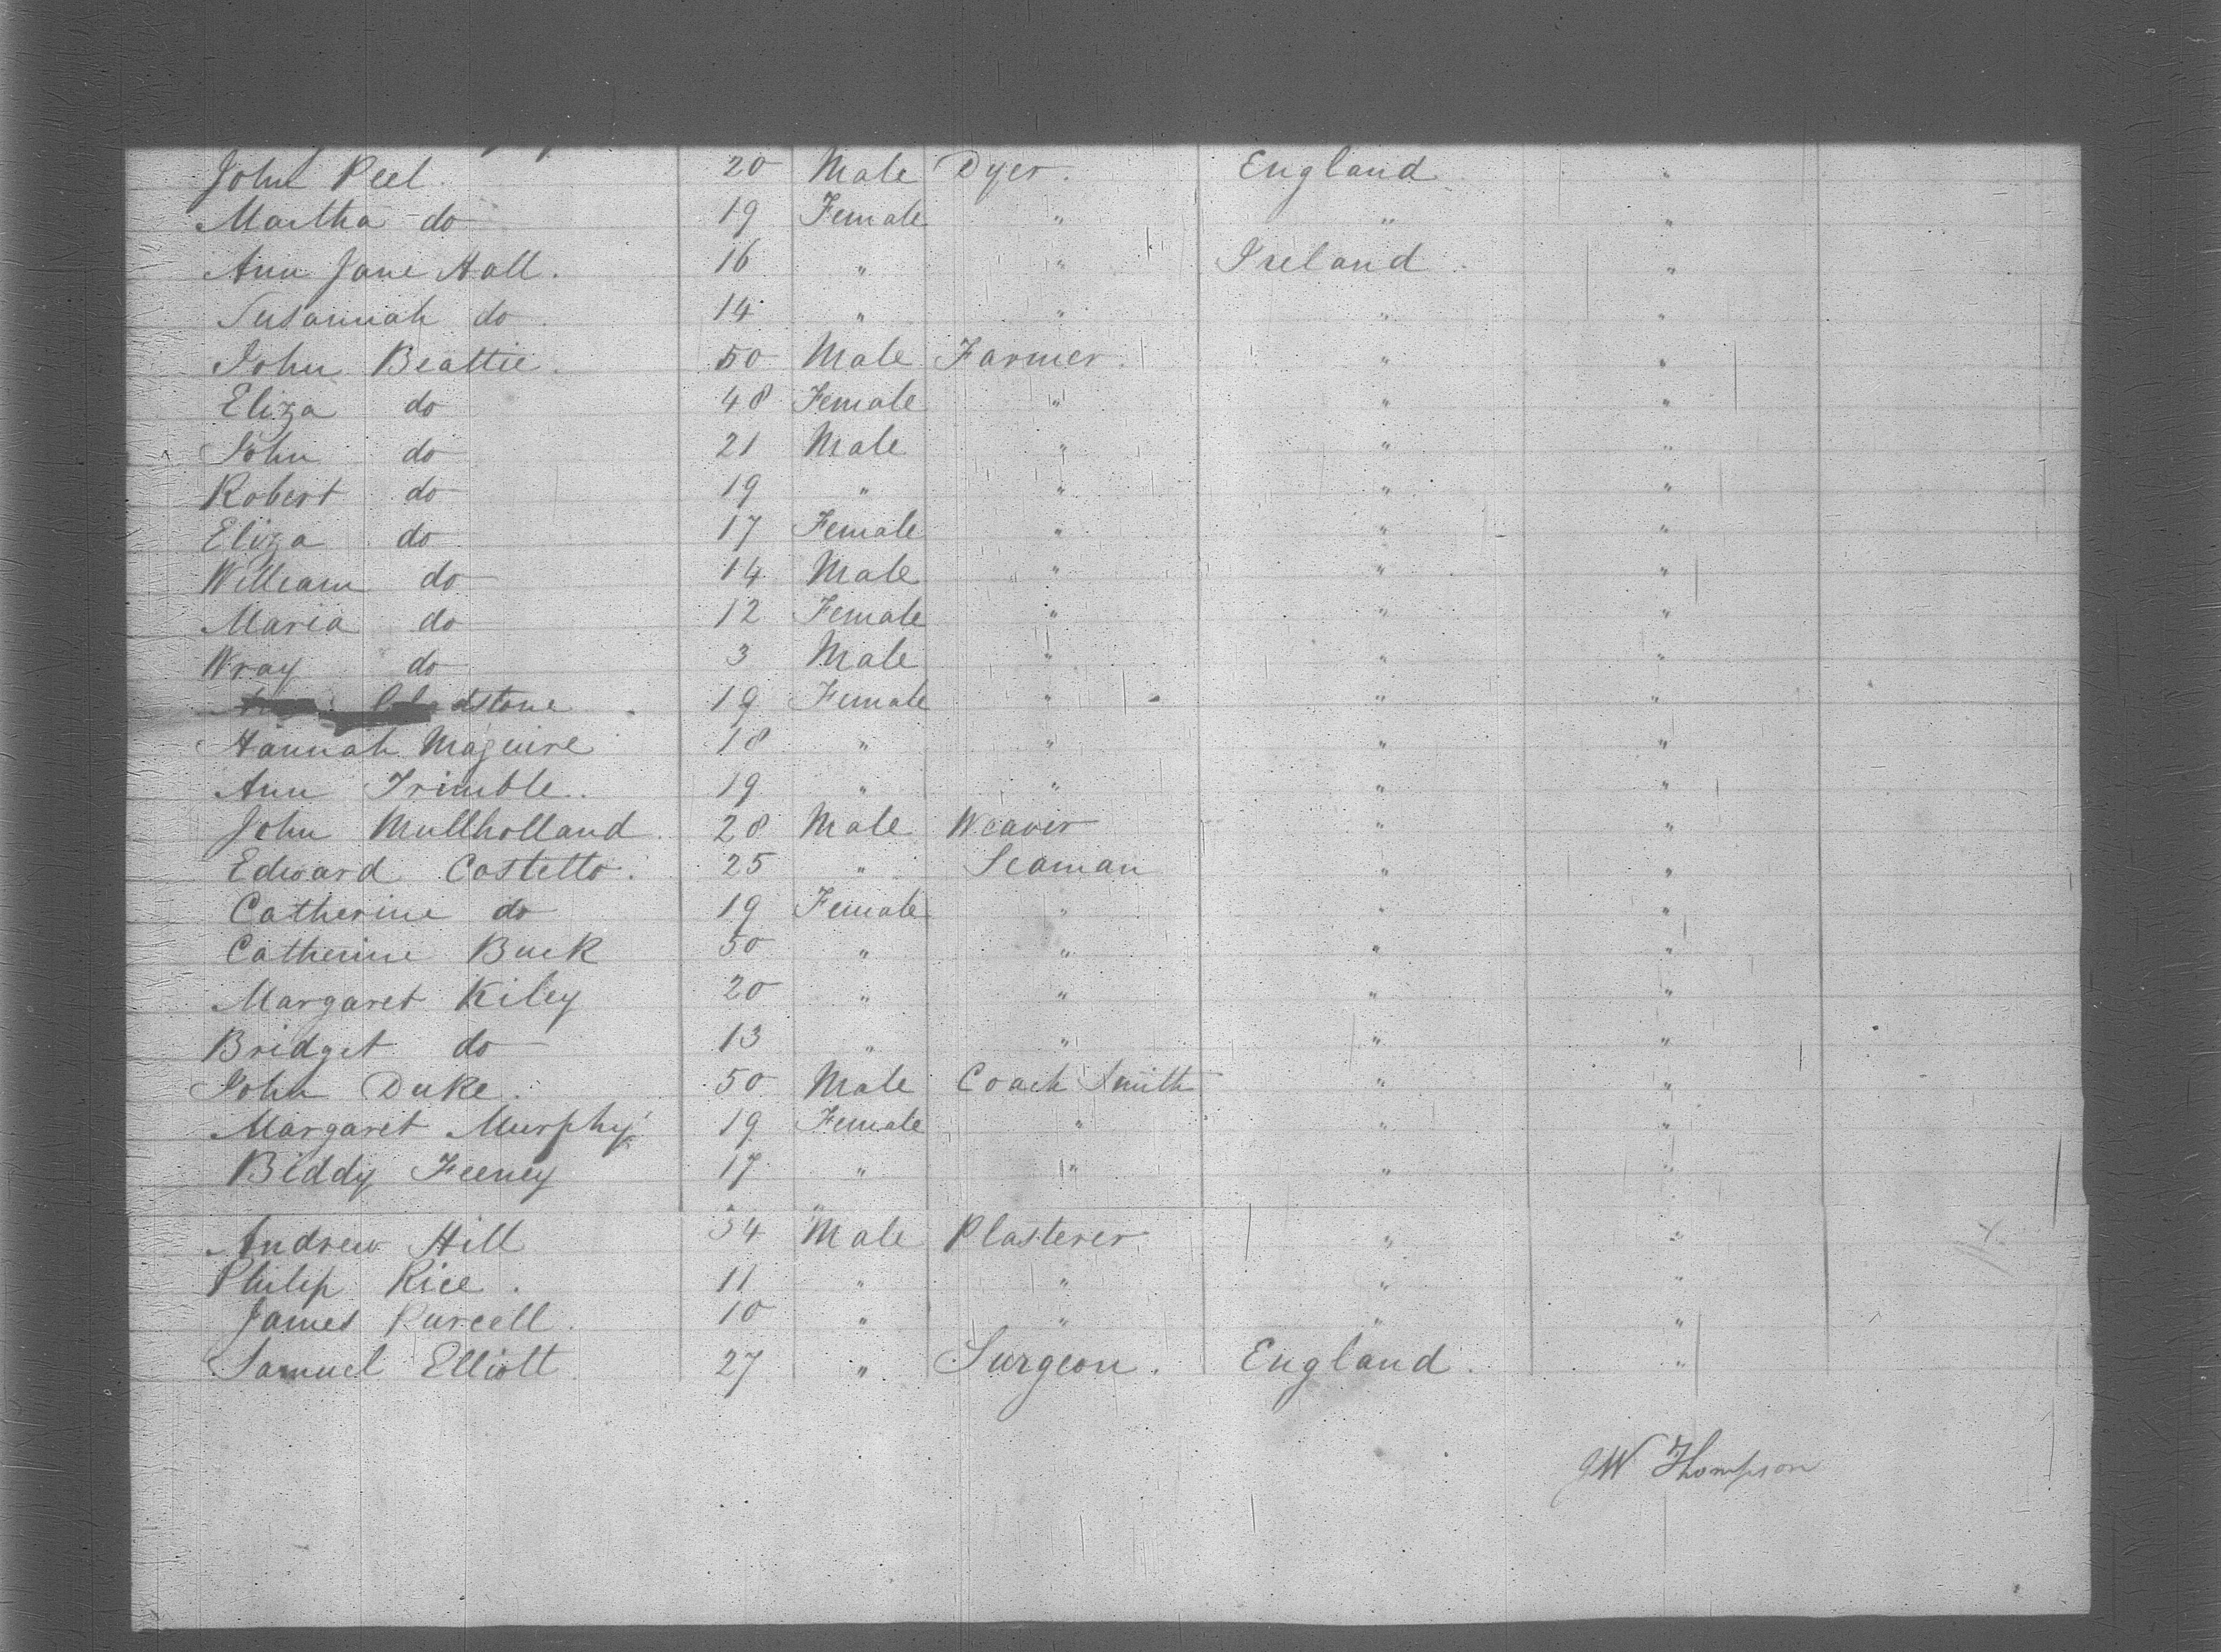 John Peel. 20 Male Dyer. England "
Martha do 19 Female " " "
Ann Jane Hall. 16 " " Ireland "
Susannah do 14 " " " "
John Beattie. 50 Male Farmer. " "
Eliza do 48 Female " " "
John do 21 Male " " "
Robert do 19 " " " "
Eliza do 17 Female " " "
William do 14 Male " " "
Maria do 12 Female " " "
Wray do 3 Male " " "
dstone 19 Female " " "
Hannah Maguire 18 " " " "
Ann Trimble. 19 " " " "
John Mullholland. 28 Male Weaver " "
Edward Costello. 25 " Seaman " "
Catherine do 19 Female " " "
Catherine Buck 50 " " " "
Margaret Kiley 20 " " " "
Bridget do 13 " " " "
John Duke. 50 Male Coach Smith " "
Margaret Murphy 19 Female " " "
Biddy Feeney 17 " " " "
Andrew Hill 34 Male Plasterer " "
Philip Rice. 11 " " " "
James Purcell. 10 " " " "
Samuel Elliott 27 " Surgeon. England. "
JW Thompson